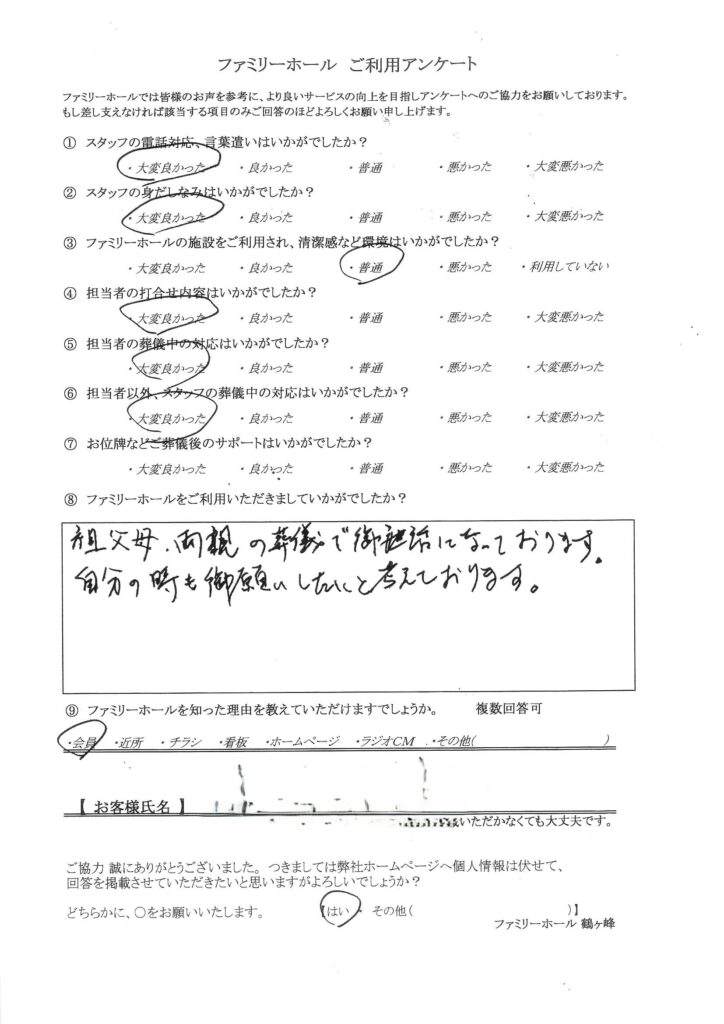 ファミリーホール ご利用アンケート
ファミリーホールでは皆様のお声を参考に、より良いサービスの向上を目指しアンケートへのご協力をお願いしております。
もし差し支えなければ該当する項目のみご回答のほどよろしくお願い申し上げます。
① スタッフの電話対応、言葉遣いはいかがでしたか？
・大変良かった ・良かった ・普通 ・悪かった ・大変悪かった
② スタッフの身だしなみはいかがでしたか？
・大変良かった ・良かった ・普通 ・悪かった ・大変悪かった
③ ファミリーホールの施設をご利用され、清潔感など環境はいかがでしたか？
・大変良かった ・良かった ・普通 ・悪かった ・利用していない
④ 担当者の打合せ内容はいかがでしたか？
・大変良かった ・良かった ・普通 ・悪かった ・大変悪かった
⑤ 担当者の葬儀中の対応はいかがでしたか？
・大変良かった ・良かった ・普通 ・悪かった ・大変悪かった
⑥ 担当者以外、スタッフの葬儀中の対応はいかがでしたか？
・大変良かった ・良かった ・普通 ・悪かった ・大変悪かった
⑦ お位牌などご葬儀後のサポートはいかがでしたか？
・大変良かった ・良かった ・普通 ・悪かった ・大変悪かった
⑧ ファミリーホールをご利用いただきましていかがでしたか？
祖父母、両親の葬儀で御世話になっております。
自分の時も御願いしたいと考えております。
⑨ ファミリーホールを知った理由を教えていただけますでしょうか。 複数回答可
・会員 ・近所 ・チラシ ・看板 ・ホームページ ・ラジオCM ・その他( )
【 お客様氏名 】
いただかなくても大丈夫です。
ご協力 誠にありがとうございました。つきましては弊社ホームページへ個人情報は伏せて、
回答を掲載させていただきたいと思いますがよろしいでしょうか？
どちらかに、〇をお願いいたします。 【はい ・ その他( )】
ファミリーホール 鶴ヶ峰